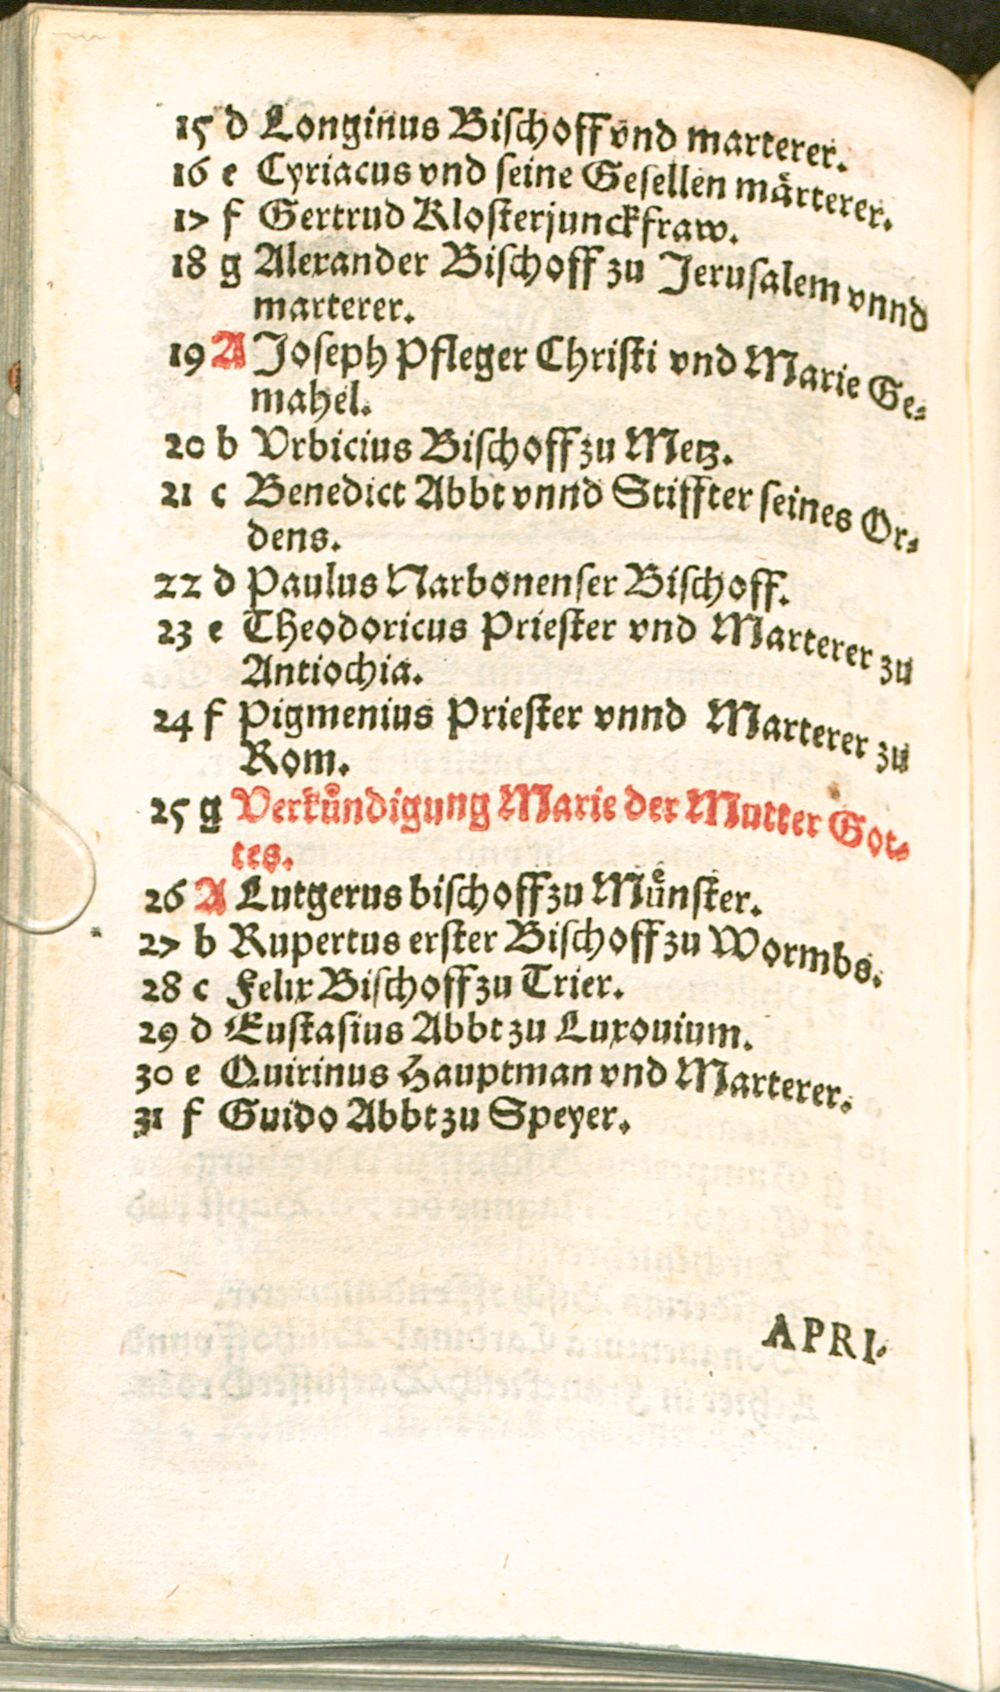 15 d Longinus Bischoff vnd marterer.
16 e Cyriacus vnd seine Gesellen märterer.
17 f Gertrud Klosterjunckfraw.
18 g Alexander Bischoff zu Jerusalem vnnd
marterer.
19 A Joseph Pfleger Christi vnd Marie Ge-
mahel.
20 b Vrbicius Bischoff zu Metz.
21 c Benedict Abbt vnnd Stiffter seines Or-
dens.
22 d Paulus Narbonenser Bischoff.
23 e Theodoricus Priester vnd Marterer zu
Antiochia.
24 f Pigmenius Priester vnnd Marterer zu
Rom.
25 g Verkuͤndigung Marie der Mutter Got-
tes.
26 A Lutgerus bischoff zu Muͤnster.
27 b Rupertus erster Bischoff zu Wormbs.
28 c Felix Bischoff zu Trier.
29 d Eustasius Abbt zu Luxouium.
30 e Quirinus Hauptman vnd Marterer.
31 f Guido Abbt zu Speyer.
APRI-